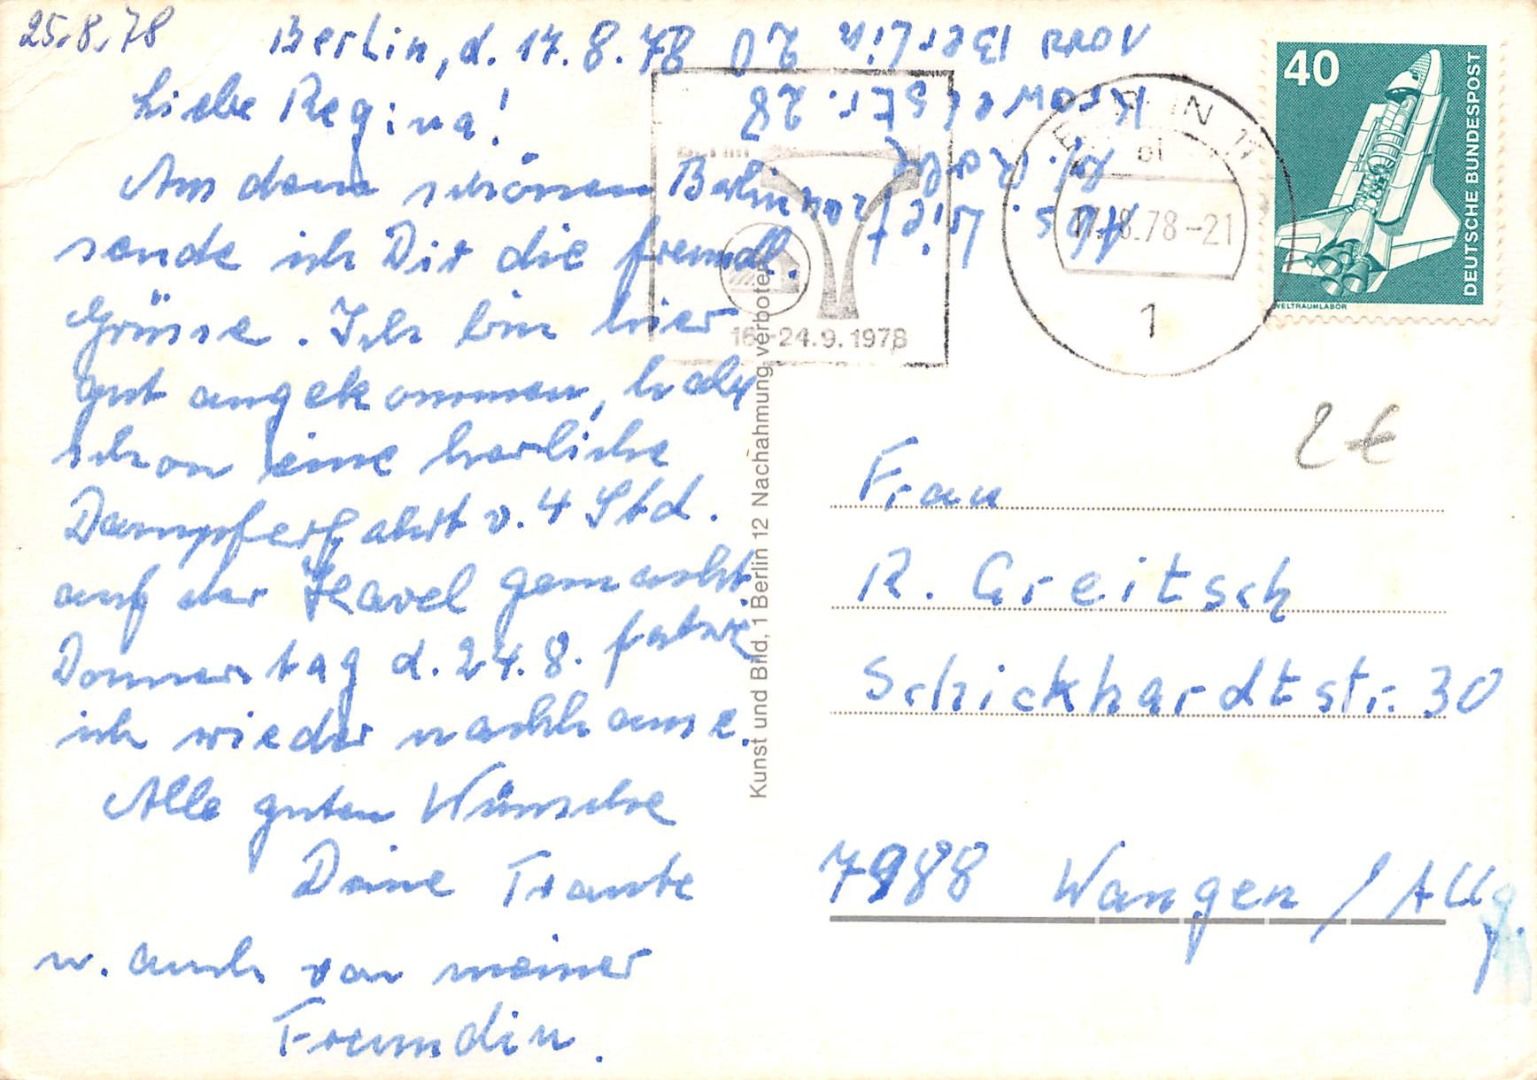 25.8.78
Berlin, d. 17.8.78
Liebe Regina!
Aus dem schönen Berlin
sende ich Dir die freundl.
Grüsse. Ich bin hier
gut angekommen, habe
schon eine herrliche
Dampferfahrt v. 4 Std.
auf der Havel gemacht.
Donnerstag d. 24.8. fahre
ich wieder nachhause.
Alle guten Wünsche
Deine Traute
u. auch von meiner
Freundin.
Abs.
28
1000 Berlin 20
Kunst und Bild, 1 Berlin 12 Nachahmung verboten
16.-24.9.1978
BERLIN 11
17.-8.78-21
1
40
DEUTSCHE BUNDESPOST
WELTRAUMLABOR
2 €
Frau
R. Greitsch
Schickhardtstr. 30
7988 Wangen / Allg.